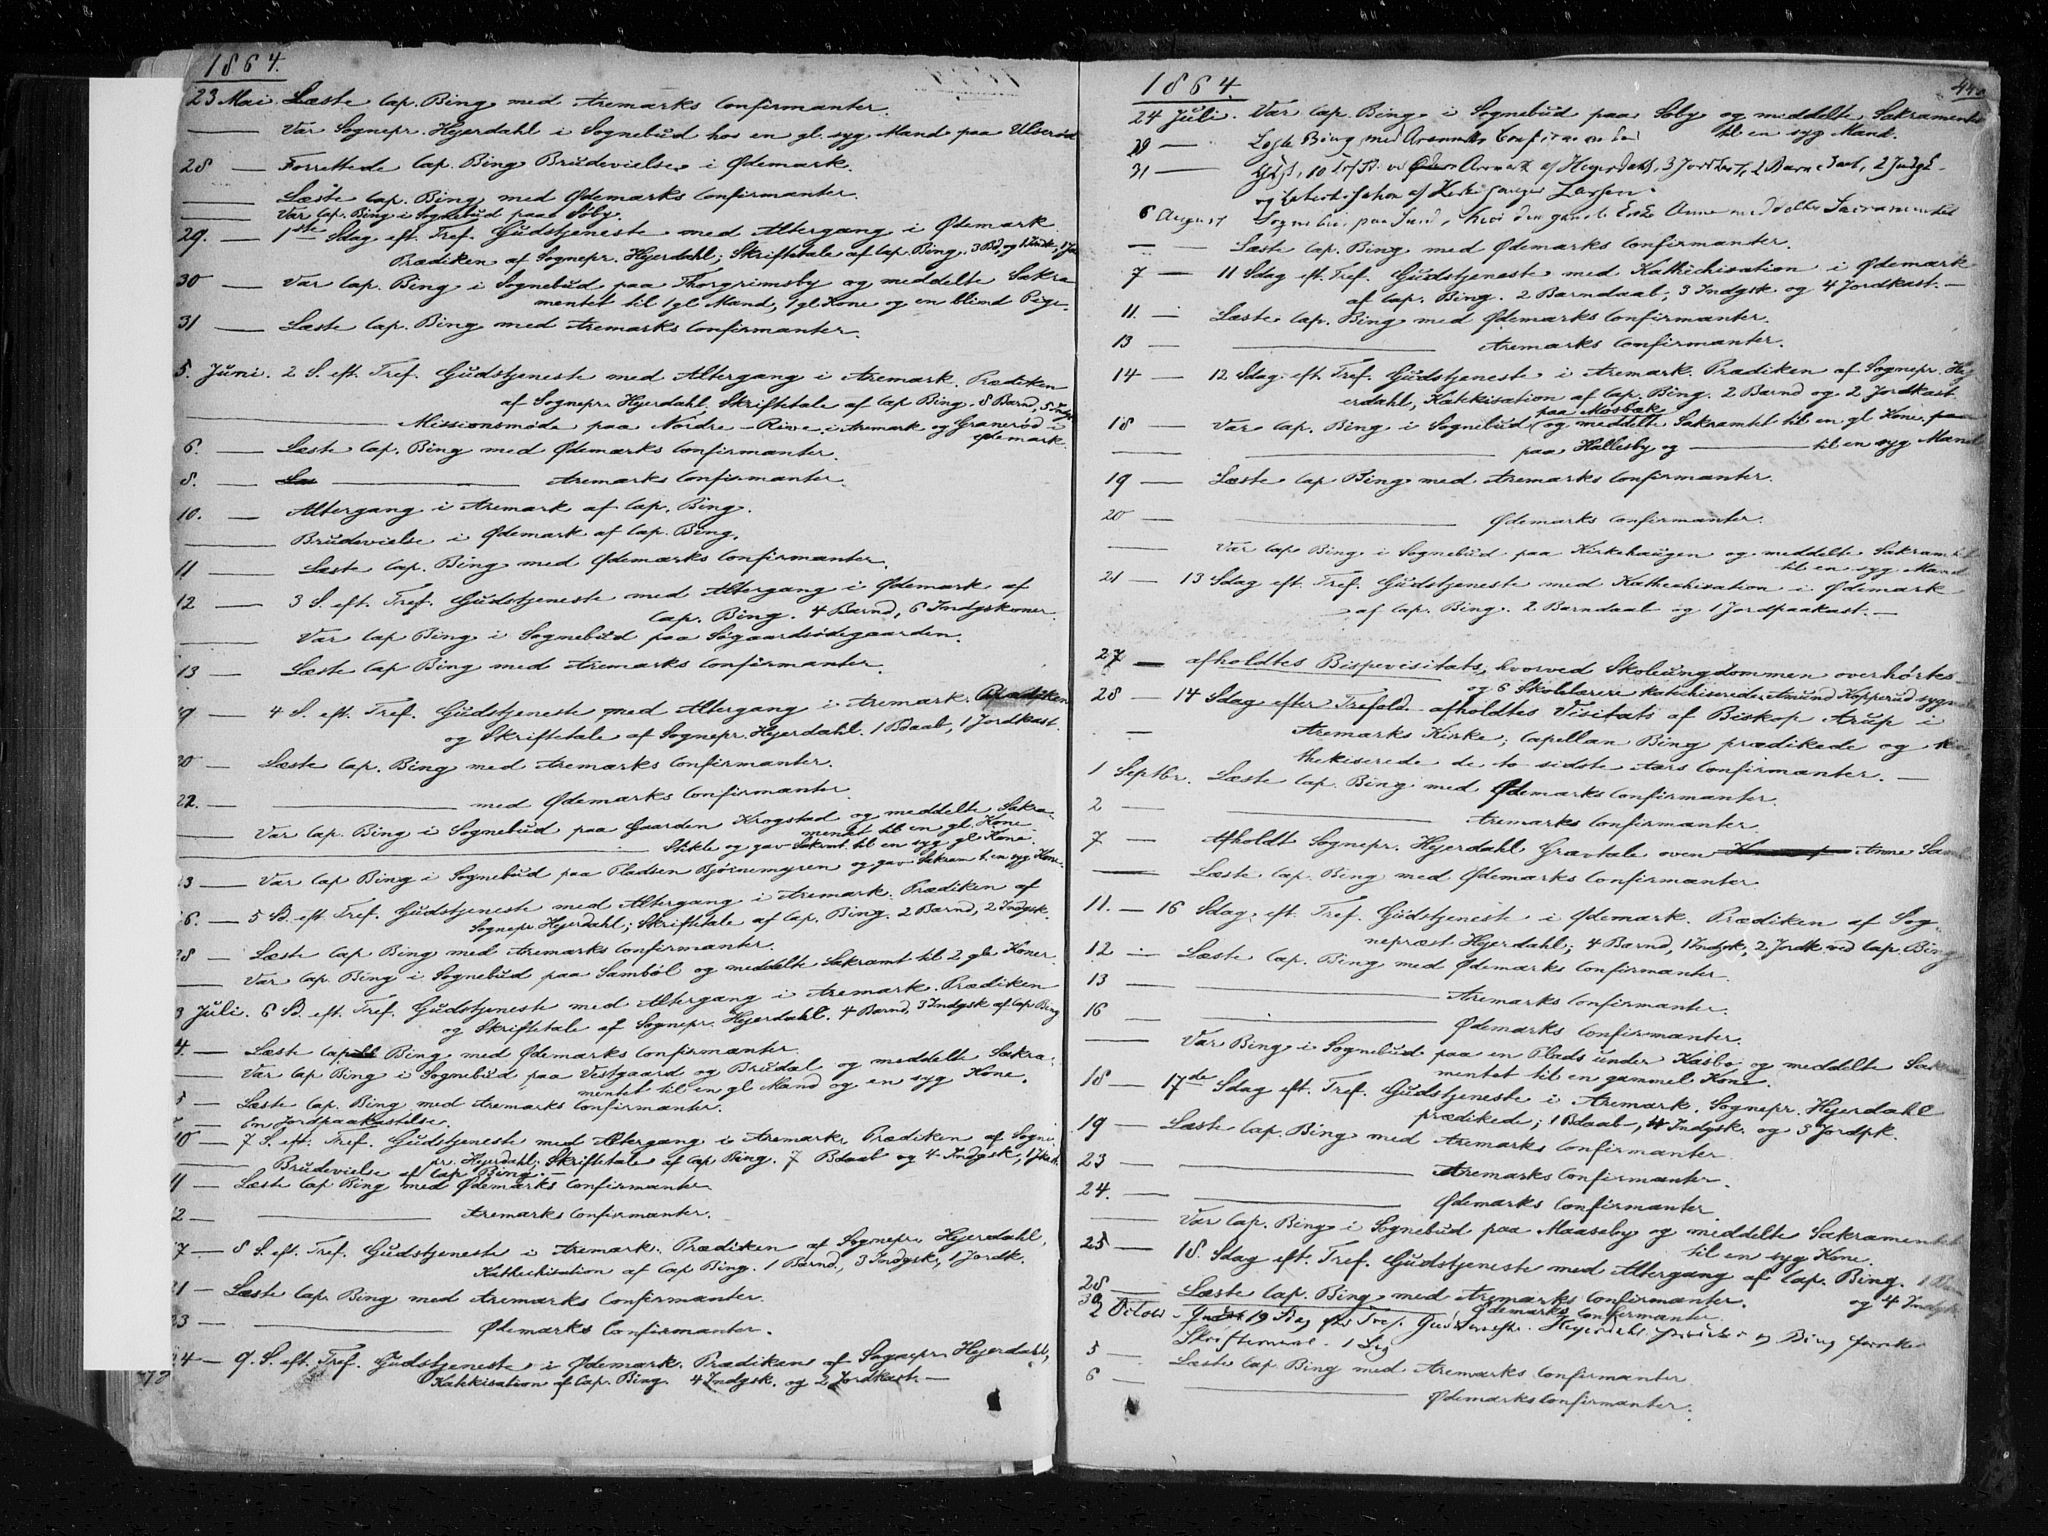 1864.
23 Mai. Læste Cap. Bing med Aremarks Confirmanter.
Var Sognepr. Hejerdahl i Sognebud hos en gl. syg Mand paa Ulserød
28 — Forrettede Cap. Bing Brudevielse i Ødemark.
Læste Cap. Bing med Ødemarks Confirmanter.
Var Cap. Bing i Sognebud paa Søby.
29. — 1ste Sdag eft. Tref. Gudstjeneste med Altergang i Ødemark
Prædiken af Sognepr. Hejerdahl; Skriftetale af Cap. Bing. 3 Bd, og 1 Indk, 1 Jor
30 — Var Cap. Bing i Sognebud paa Thorgrimsby og meddelte Sakra
mentet til 1 gl Mand, 1 gl Kone og en blind Pige.
31 — Læste Cap. Bing med Aremarks Confirmanter.
5. Juni. 2 S. eft. Tref. Gudstjeneste med Altergang i Aremark. Prædiken
af Sognepr. Hejerdahl, Skriftetale af Cap Bing. 8 Barnd, 5 Indgk
— Missionsmøde paa Nordre-Rive i Aremark og Granerød i
Ødemark.
6. — Læste Cap. Bing med Ødemarks Confirmanter.
8. — Læs — Aremarks Confirmanter.
10. — Altergang i Aremark af Cap. Bing.
— Brudevielse i Ødemark af Cap. Bing.
11 — Læste Cap. Bing med Ødemarks Confirmanter.
12 — 3 S. eft. Tref. Gudstjeneste med Altergang i Ødemark af
Cap. Bing. 4 Barnd, 6 Indgskoner
— Var Cap Bing i Sognebud paa Søgaardsødegaarden.
13 — Læste Cap Bing med Aremarks Confirmanter.
19 — 4 S. eft. Tref. Gudstjeneste med Altergang i Aremark. Prædiken
og Skriftetale af Sognepr. Hejerdahl. 1 Bdaab, 1 Jordkast.
20 — Læste Cap. Bing med Aremarks Confirmanter.
22. — med Ødemarks Confirmanter.
— Var Cap. Bing i Sognebud paa Gaarden Krogstad og meddelte Sakra-
mentet til en gl. Kone.
— Stikle og gav Sakrmt. til en syg gl Kone.
23 — Var Cap Bing i Sognebud paa Pladsen Bjørnemyren og gav Sakram t. en syg Kone.
26. — 5 Sd. eft. Tref. Gudstjeneste med Altergang i Aremark. Prædiken af
Sognepr Hejerdahl; Skriftetale af Cap. Bing. 2 Barnd, 2 Indgsk.
28 — Læste Cap Bing med Aremarks Confirmanter.
— Var Cap. Bing i Sognebud paa Sambøl og meddelte Sakramt til 2 gle Koner.
3 Juli. 6 Sd. eft. Tref. Gudstjeneste med Altergang i Aremark. Prædiken
og Skriftetale af Sognepr. Hejerdahl. 4 Barnd, 3 Indgsk af Cap Bing
4. — Læste Cap Bing med Ødemarks Confirmanter.
— Var Cap Bing i Sognebud paa Vestgaard og Brudal og meddelte Sakra-
mentet til en gl Mand og en syg Kone.
5 — Læste Cap. Bing med Aremarks Confirmanter.
— En Jordpaakastelse.
10 — 7 S. eft. Tref. Gudstjeneste med Altergang i Aremark. Prædiken af Sogne-
pr. Hejerdahl; Skriftetale af Cap Bing. 7 Bdaab og 4 Indgsk, 1 Jkast.
— Brudevielse af Cap Bing. —
11 — Læste Cap Bing med Ødemarks Confirmanter.
12 — Aremarks Confirmanter.
17 — 8 S. eft. Tref. Gudstjeneste i Aremark. Prædiken af Sognepr Hejerdahl,
Kathechisation af Cap Bing. 1 Barnd, 3 Indgsk, 1 Jordk.
21 — Læste Cap. Bing med Aremarks Confirmanter.
23 — Ødemarks Confirmanter.
24 — 9. S. eft. Tref. Gudstjeneste i Ødemark. Prædiken af Sognepr Hejerdahl,
Kathkisation af Cap. Bing. 4 Indgsk. og 2 Jordkast. —
1864.
440
24 Juli. Var Cap. Bing i Sognebud paa Søby og meddelte Sakramente
til en syg Mand.
29 — Bing med Aremarks Confirmanter
31 — 10 Aremark af Hejerdahl, 3 Jordkast, 2 Barnedaab, 2 Indg
og Katechisation af Kirkesanger Larsen.
6 August Sognebud paa Sund, hvor den gamle Enke Anne meddeltes Sacramentet
— Læste Cap. Bing med Ødemarks Confirmanter.
7 — 11 Sdag eft. Tref. Gudstjeneste med Kathechisation i Ødemark
af Cap. Bing. 2 Barndaab, 3 Indgsk og 4 Jordkast. —
11. — Læste Cap. Bing med Ødemarks Confirmanter.
13 — Aremarks Confirmanter.
14 — 12 Sdag eft. Tref. Gudstjeneste i Aremark. Prædiken af Sognepr. Hej-
erdahl, Kathkisation af Cap. Bing. 2 Barnd og 2 Jordkast
paa Mosbæk
18 — Var Cap. Bing i Sognebud og meddelte Sakramtet til en gl Kone paa
— paa Hallesby og — til en syg Mand
19 — Læste Cap Bing med Aremarks Confirmanter.
20 — Ødemarks Confirmanter.
— Var Cap Bing i Sognebud paa Kirkehaugen og meddelte Sakramtet
til en syg Mand
21 — 13 Sdag eft. Tref. Gudstjeneste med Kathechisation i Ødemark
af Cap. Bing. 2 Barndaab og 1 Jordpaakast. —
27 — afholdtes Bispevisitats, hvorved Skoleungdommen overhørtes
og 6 Skolelærere katechiserede. Amund Kopperud syg
28 — 14 Sdag efter Trefold. afholdtes Visitats af Biskop Arup i
— Aremarks Kirke; Capellan Bing prædikede og ka-
thekiserede de to sidste Aars Confirmanter. —
1 Septbr. Læste Cap. Bing med Ødemarks Confirmanter.
2 — Aremarks Confirmanter.
7 — Afholdt Sognepr. Hejerdahl Gravtale over Anne
— Læste Cap. Bing med Ødemarks Confirmanter
11. — 16 Sdag eft. Tref. Gudstjeneste i Ødemark. Prædiken af Sog-
nepræst Hejerdahl; 4 Barnd, 1 Indgsk, 2 Jordk. ved Cap. Bing
12 — Læste Cap. Bing med Ødemarks Confirmanter.
13 — Aremarks Confirmanter.
16 — Ødemarks Confirmanter.
— Var Bing i Sognebud paa en Plads under Kasbo og meddelte Sakra-
mentet til en gammel Kone.
18 — 17de Sdag eft. Tref. Gudstjeneste i Aremark. Sognepr. Hejerdahl
prædikede; 1 Bdaab, 4 Indgsk. og 3 Jordpk.
19 — Læste Cap. Bing med Aremarks Confirmanter.
23 — Aremarks Confirmanter.
24. — Ødemarks Confirmanter
— Var Cap. Bing i Sognebud paa Maaseby og meddelte Sakramentet
til en syg Kone.
25 — 18. Sdag eft. Tref. Gudstjeneste med Altergang af Cap. Bing.
og 4 Indgsk
28 — Læste Cap. Bing med Aremarks Confirmanter.
30 — Ødemarks Confirmanter
2 Octobr. 19 Sdag eft Tref. Gudstjeneste. Hejerdahl prædiken og Bing forret
Skriftemaal. 1
5 — Læste Cap. Bing med Aremarks Confirmanter.
6 — Ødemarks Confirmanter.